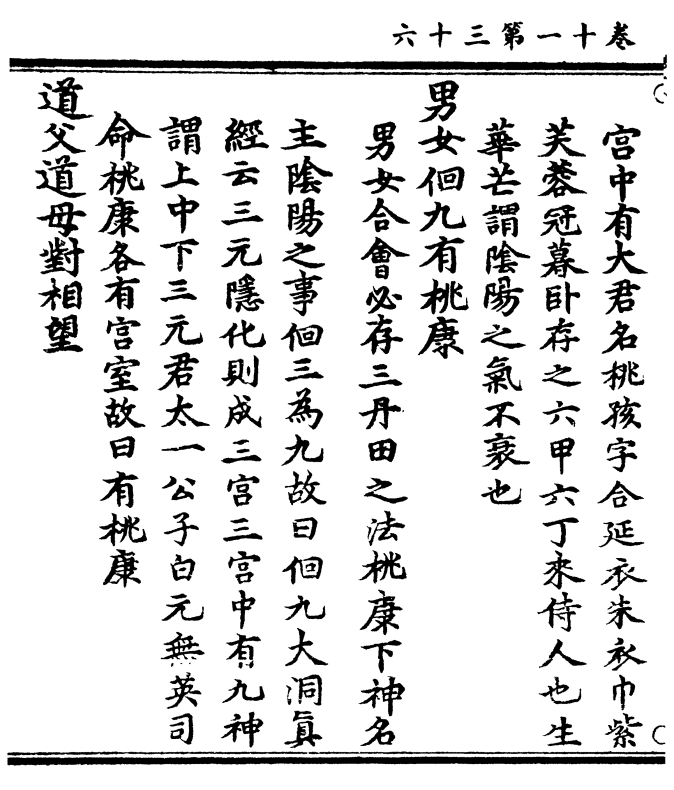 卷十一第三十六
宫中有大君名桃孩字合延衣朱衣巾紫
芙蓉冠暮卧存之六甲六丁來侍人也生
華芒謂陰陽之氣不衰也
男女佪九有桃康
男女合會必存三丹田之法桃康下神名
主陰陽之事佪三為九故曰佪九大洞眞
經云三元隱化則成三宫三宫中有九神
謂上中下三元君太一公子白元無英司
命桃康各有宫室故曰有桃康
道父道母對相望